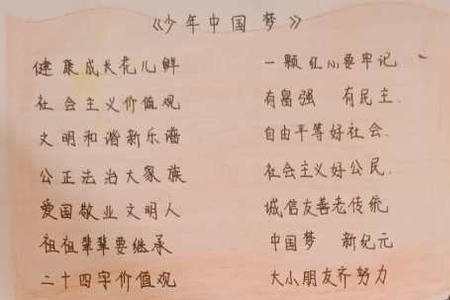 《少年中国梦》
健康成长花儿鲜
一颗红心要牢记
社会主义价值观
有富强 有民主.
文明和谐新乐谱
自由平等好社会.
公正法治大家族
社会主义好公民.
爱国敬业文明人
诚信友善老传统
祖祖辈辈要继承
中国梦 新纪元
二十四字价值观
大小朋友齐努力